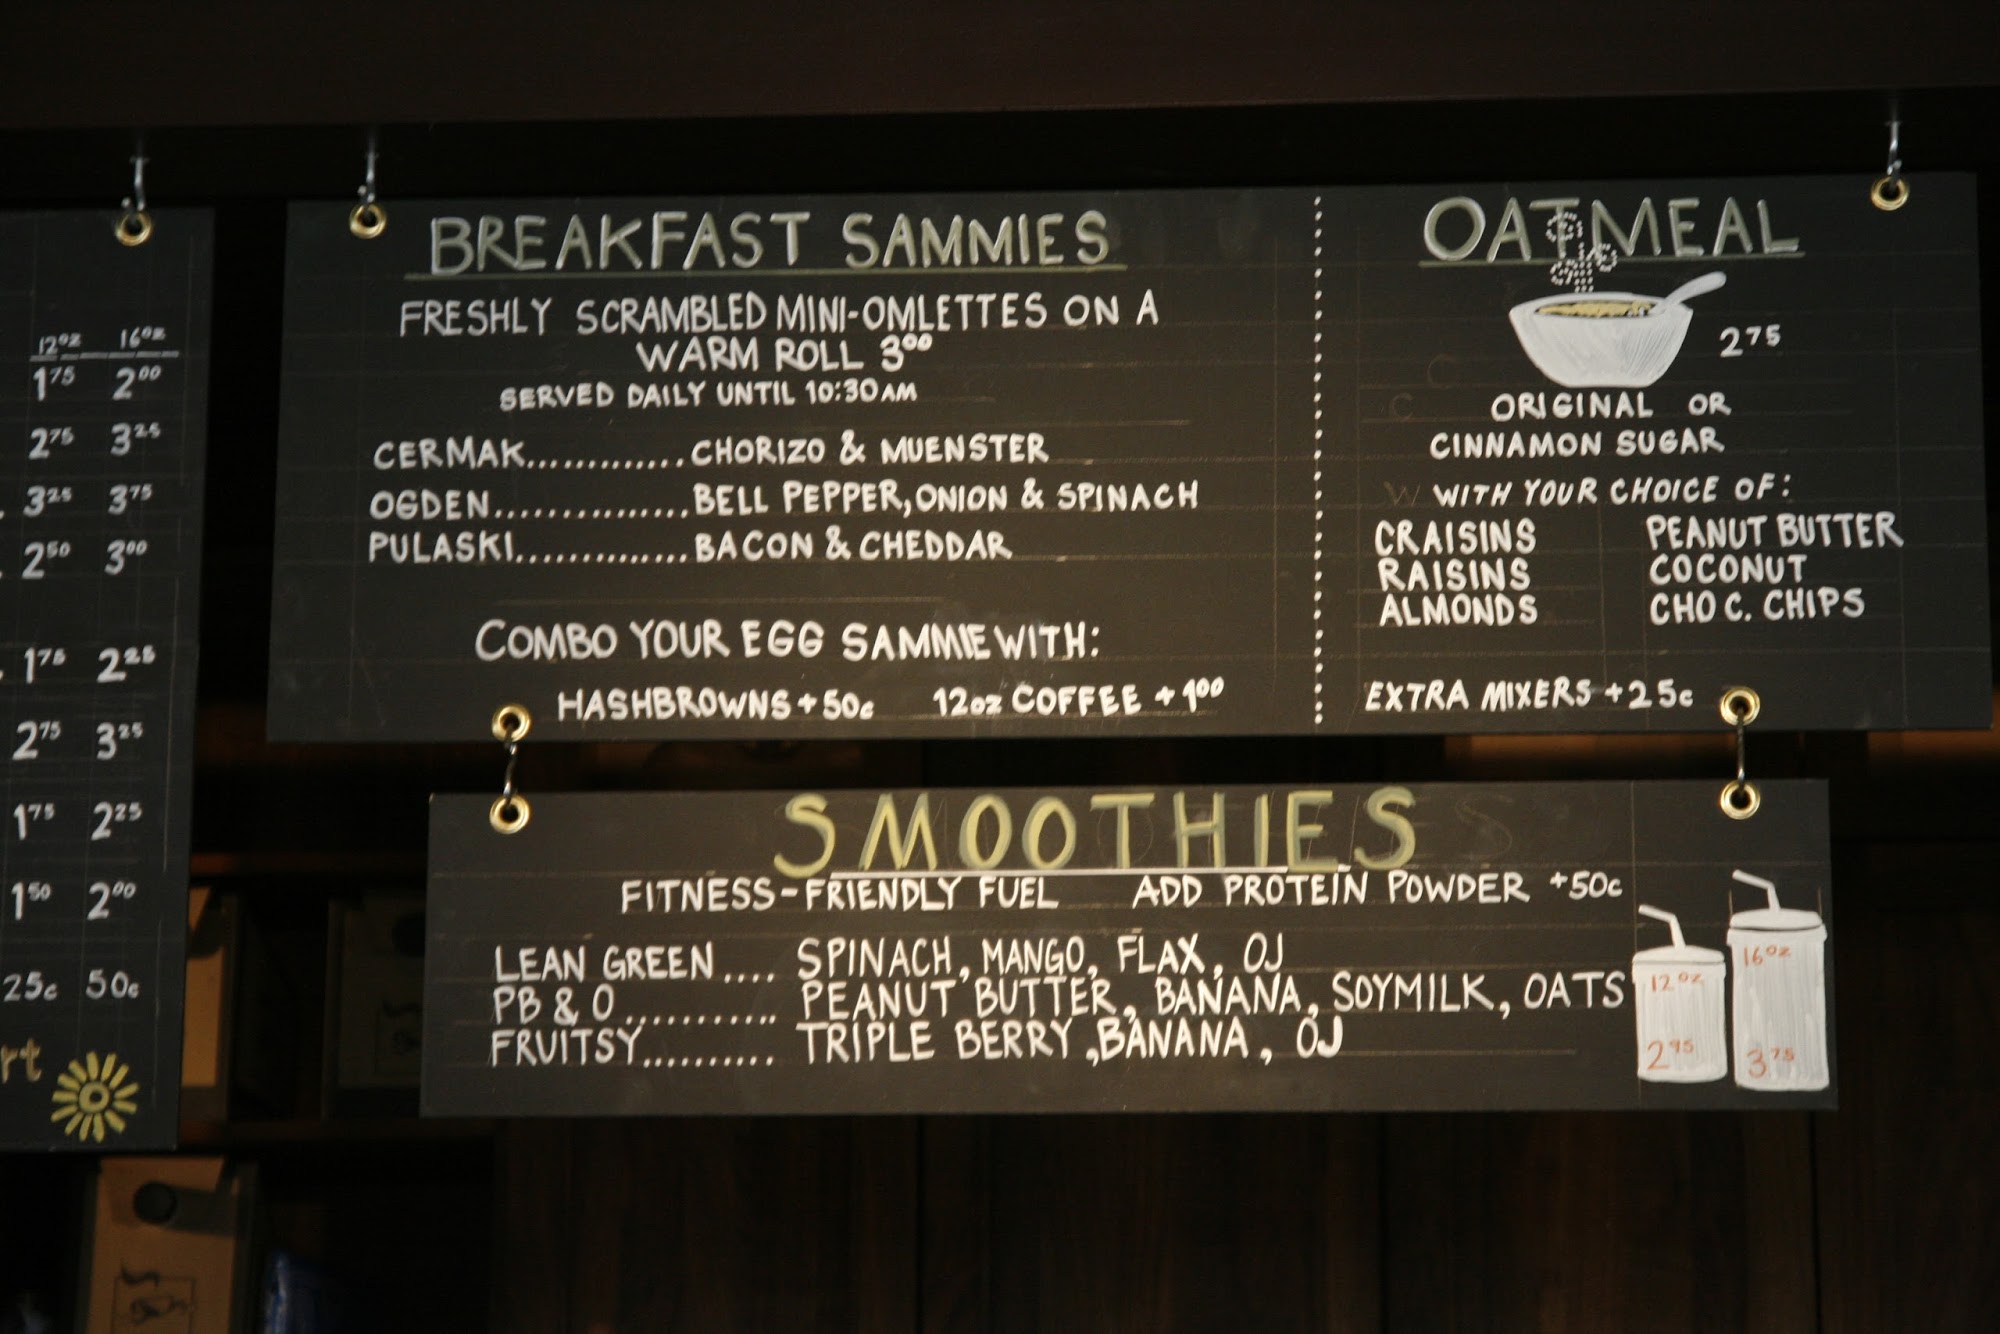 12oz 16oz
1.75 2.00
2.75 3.25
3.25 3.75
2.50 3.00
1.75 2.25
2.75 3.25
1.75 2.25
1.50 2.00
25c 50c
rt
BREAKFAST SAMMIES
FRESHLY SCRAMBLED MINI-OMLETTES ON A
WARM ROLL 3.00
SERVED DAILY UNTIL 10:30AM
CERMAK.............CHORIZO & MUENSTER
OGDEN...............BELL PEPPER, ONION & SPINACH
PULASKI..............BACON & CHEDDAR
COMBO YOUR EGG SAMMIE WITH:
HASHBROWNS +50c 12oz COFFEE +1.00
OATMEAL
2.75
ORIGINAL OR
CINNAMON SUGAR
WITH YOUR CHOICE OF:
CRAISINS PEANUT BUTTER
RAISINS COCONUT
ALMONDS CHOC. CHIPS
EXTRA MIXERS +25c
SMOOTHIES
FITNESS-FRIENDLY FUEL ADD PROTEIN POWDER +50c
LEAN GREEN.... SPINACH, MANGO, FLAX, OJ
PB & O........... PEANUT BUTTER, BANANA, SOYMILK, OATS
FRUITSY.......... TRIPLE BERRY, BANANA, OJ
12oz 16oz
2.95 3.75